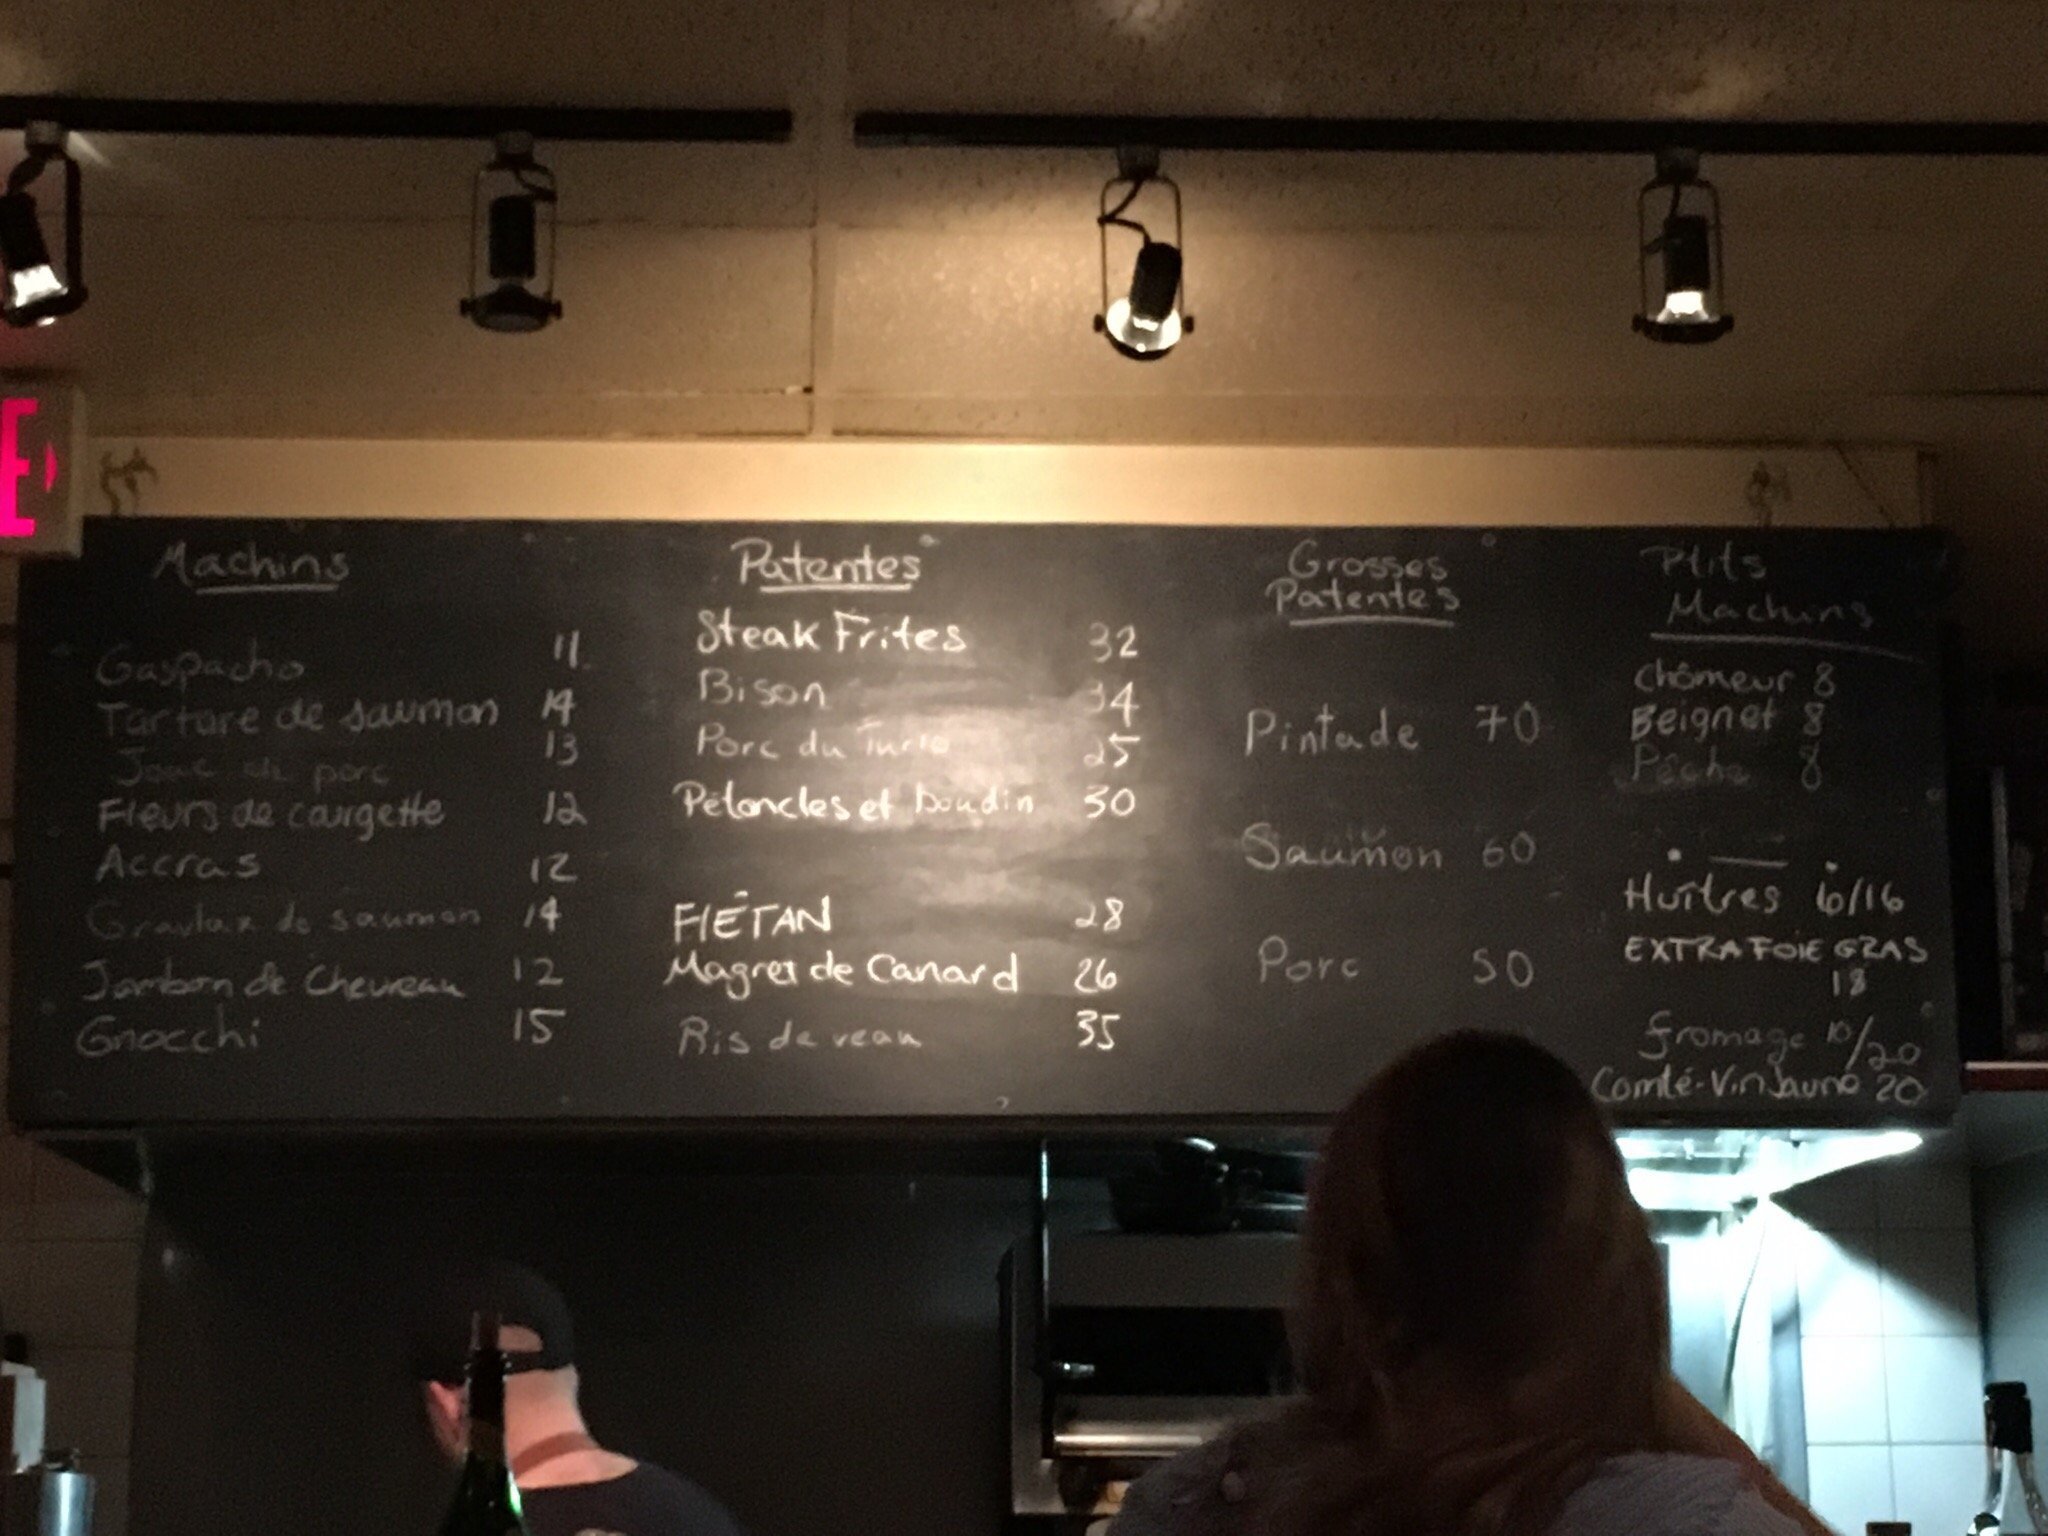 E
Machins
Gaspacho 11
Tartare de saumon 14
Joue de porc 13
Fleurs de courgette 12
Accras 12
Gravlax de saumon 14
Jambon de Chevreau 12
Gnocchi 15
Patentes
Steak Frites 32
Bison 34
Porc du 25
Pétoncles et boudin 30
FLÉTAN 28
Magret de Canard 26
Ris de veau 35
Grosses
Patentes
Pintade 70
Saumon 60
Porc 50
Ptits
Machins
Chômeur 8
Beignet 8
Pêche 8
Huîtres 6/16
EXTRA FOIE GRAS
18
fromage 10/20
Comté-Vin Jaune 20